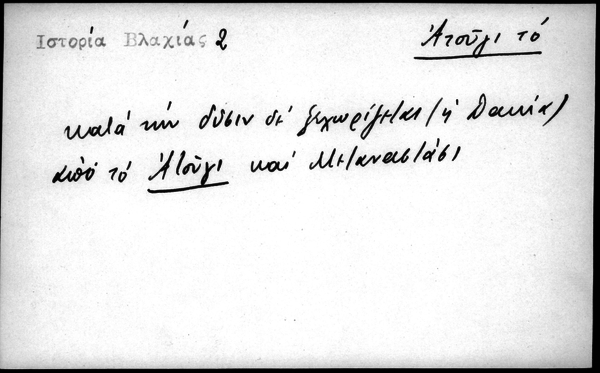 Ιστορία Βλαχίας 2
Ἀτοῦγι τό
κατά τήν δύσιν δέ ξεχωρίζεται (ἡ Δακία)
ἀπό τό Ἀτοῦγι καί Μεταναστάσι